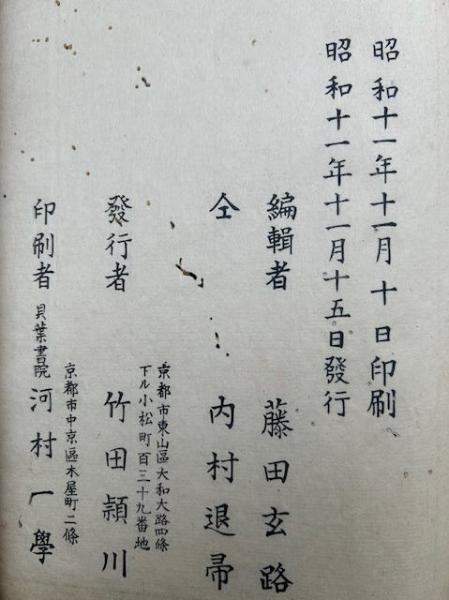 昭和十一年十一月十日印刷
昭和十一年十一月十五日發行
編輯者 藤田玄路
仝 内村退帚
京都市東山區大和大路四條
下ル小松町百三十九番地
發行者 竹田頴川
京都市中京區木屋町二條
印刷者 貝葉書院 河村一學